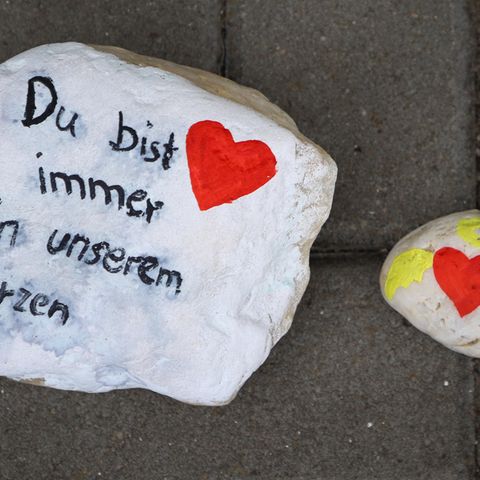 Du bist
immer
n unserem
rzen